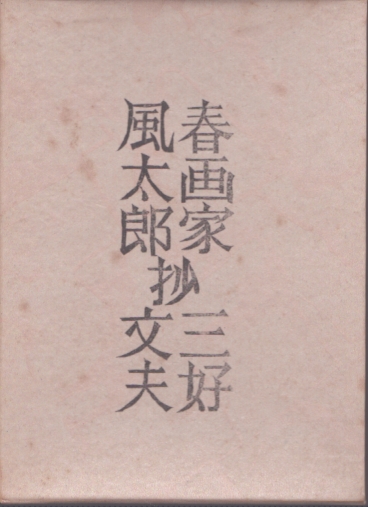 春画家
風太郎
抄
三好
文夫